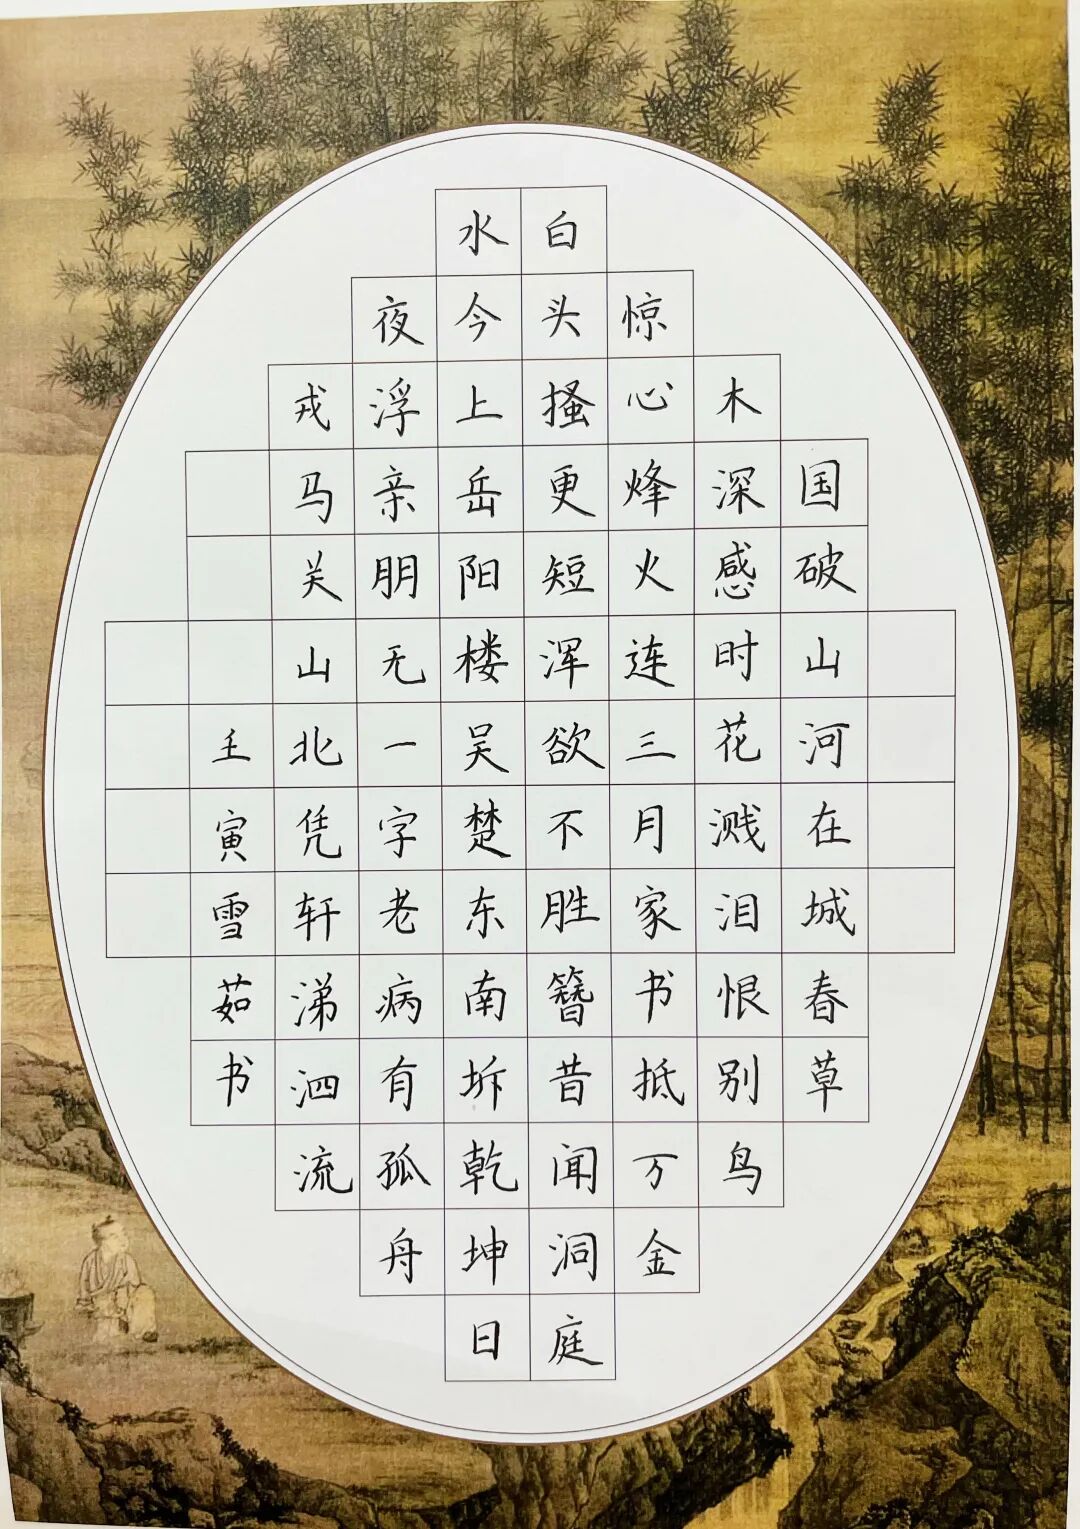 国破山河在城春草
木深感时花溅泪恨别鸟
惊心烽火连三月家书抵万金
白头搔更短浑欲不胜簪昔闻洞庭
水今上岳阳楼吴楚东南坼乾坤日
夜浮亲朋无一字老病有孤舟
戎马关山北凭轩涕泗流
壬寅雪茹书